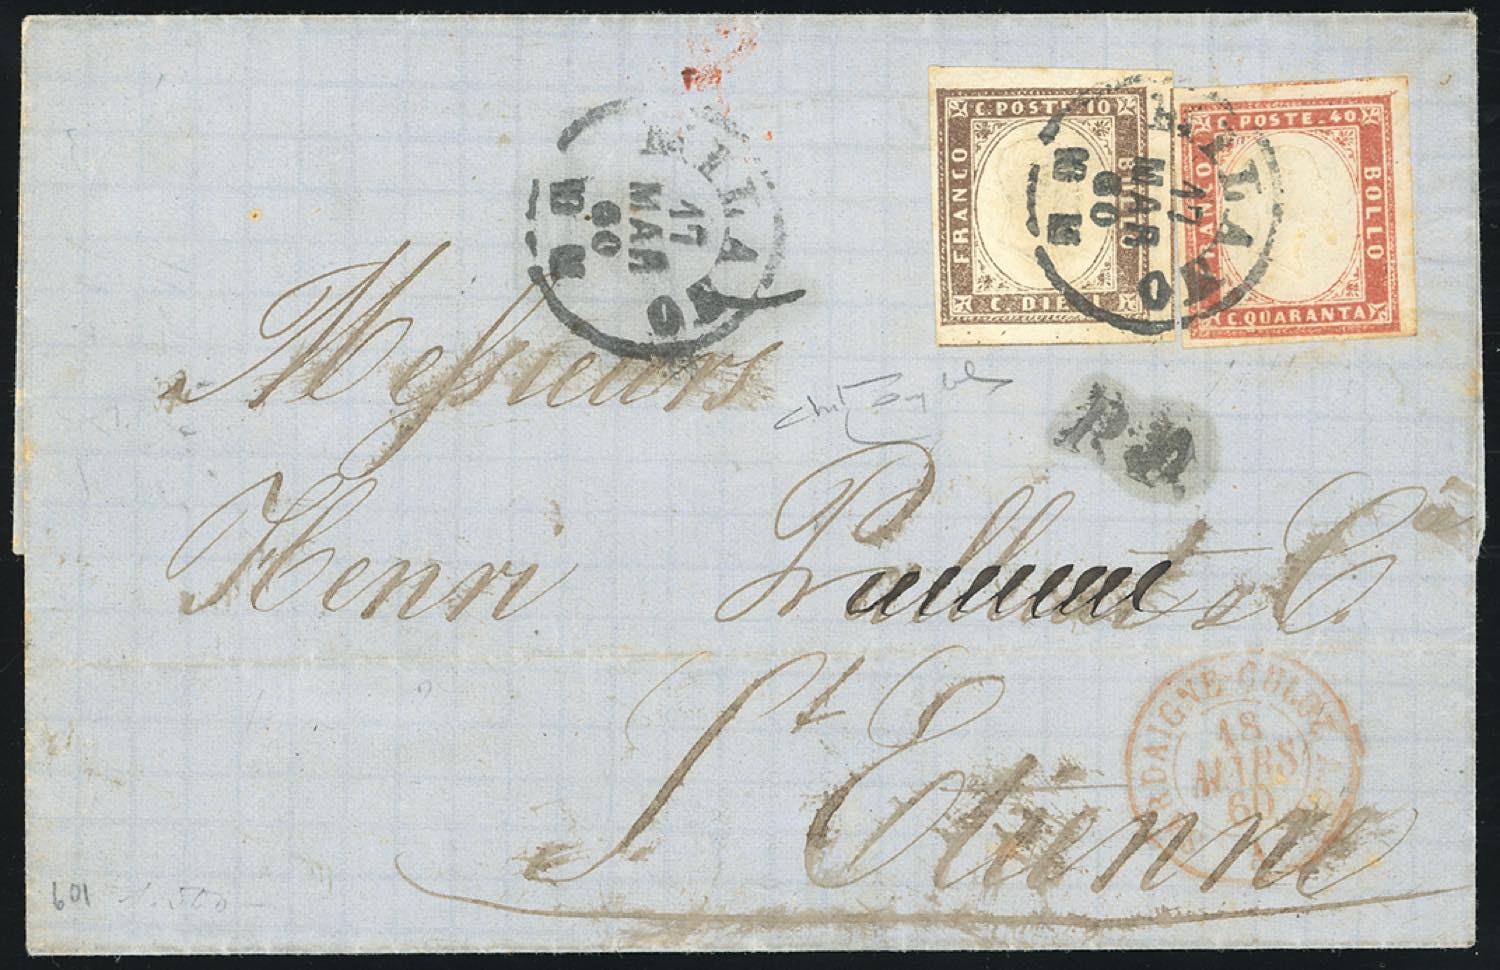 C. POSTE. 10
FRANCO
BOLLO
C. DIECI
C. POSTE. 40
FRANCO
BOLLO
C. QUARANTA
MILANO
17
MAR
60
MILANO
17
MAR
60
Messieurs
P.D.
Henri & C.
St Etienne
SARDAIGNE CULOZ
18
MARS
60
601